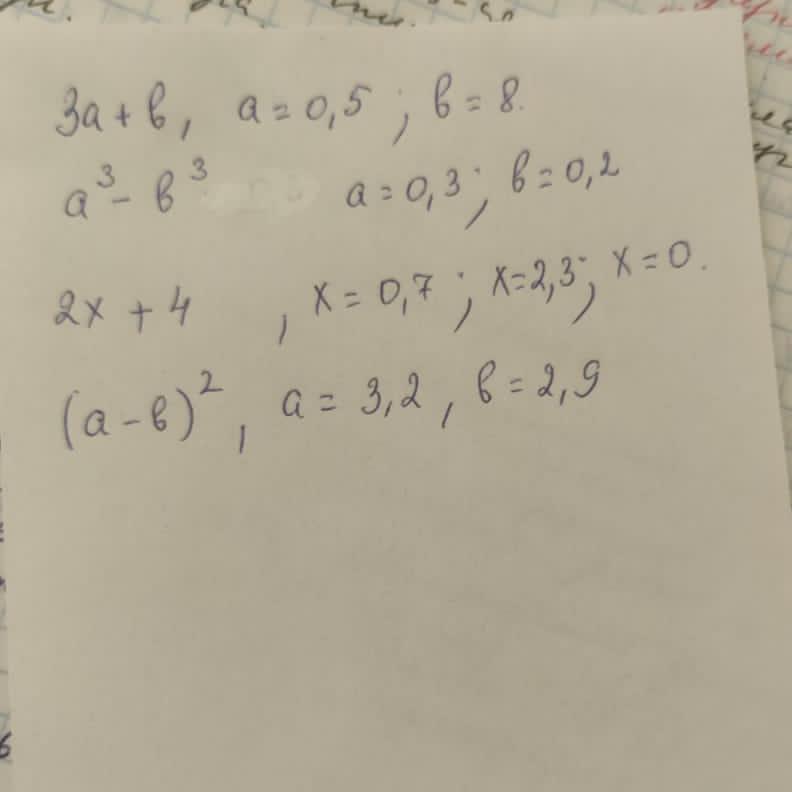 3a + b, a = 0,5 ; b = 8.
a³ - b³ a = 0,3 ; b = 0,2
2x + 4 , x = 0,7 ; x = 2,3 ; x = 0.
(a - b)², a = 3,2 , b = 2,9